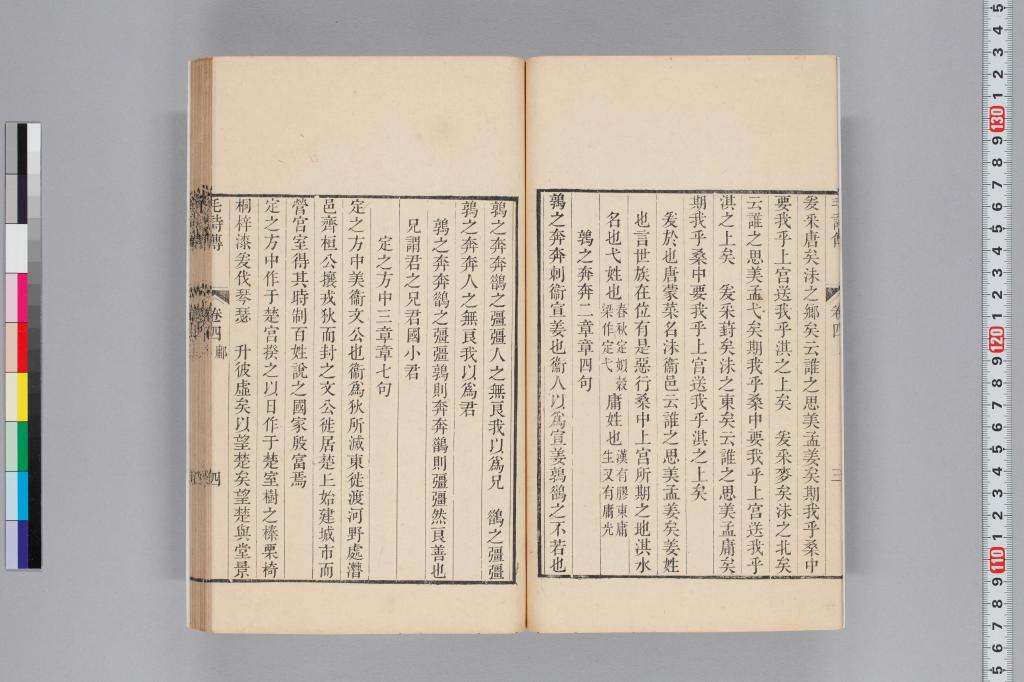 爰采唐矣沬之鄉矣云誰之思美孟姜矣期我乎桑中
要我乎上宮送我乎淇之上矣　爰采麥矣沬之北矣
云誰之思美孟弋矣期我乎桑中要我乎上宮送我乎
淇之上矣　爰采葑矣沬之東矣云誰之思美孟庸矣
期我乎桑中要我乎上宮送我乎淇之上矣
爰於也唐蒙菜名沬衞邑云誰之思美孟姜矣姜姓
也言世族在位有是惡行桑中上宮所期之地淇水
名也弋姓也春秋定姒穀梁作定弋庸姓也漢有膠東庸生又有庸光
鶉之奔奔二章章四句
鶉之奔奔刺衞宣姜也衞人以爲宣姜鶉鵲之不若也
卷四
三
鶉之奔奔鵲之彊彊人之無良我以爲兄　鵲之彊彊
鶉之奔奔人之無良我以爲君
鶉之奔奔鵲之彊彊鶉則奔奔鵲則彊彊然良善也
兄謂君之兄君國小君
定之方中三章章七句
定之方中美衞文公也衞爲狄所滅東徙渡河野處漕
邑齊桓公攘戎狄而封之文公徙居楚丄始建城市而
營宮室得其時制百姓說之國家殷富焉
定之方中作于楚宮揆之以日作于楚室樹之榛栗椅
桐梓漆爰伐琴瑟　升彼虛矣以望楚矣望楚與堂景
毛詩傳
卷四鄘
四